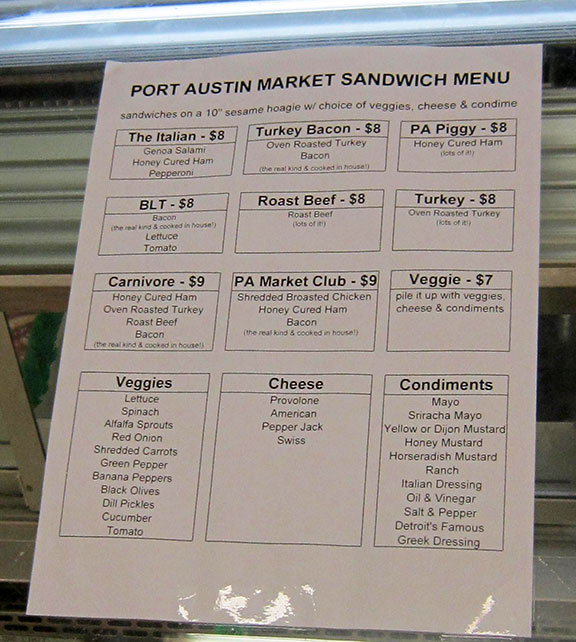 PORT AUSTIN MARKET SANDWICH MENU
sandwiches on a 10" sesame hoagie w/ choice of veggies, cheese & condime
The Italian - $8
Genoa Salami
Honey Cured Ham
Pepperoni
Turkey Bacon - $8
Oven Roasted Turkey
Bacon
(the real kind & cooked in house!)
PA Piggy - $8
Honey Cured Ham
(lots of it!)
BLT - $8
Bacon
(the real kind & cooked in house!)
Lettuce
Tomato
Roast Beef - $8
Roast Beef
(lots of it!)
Turkey - $8
Oven Roasted Turkey
(lots of it!)
Carnivore - $9
Honey Cured Ham
Oven Roasted Turkey
Roast Beef
Bacon
(the real kind & cooked in house!)
PA Market Club - $9
Shredded Broasted Chicken
Honey Cured Ham
Bacon
(the real kind & cooked in house!)
Veggie - $7
pile it up with veggies,
cheese & condiments
Veggies
Lettuce
Spinach
Alfalfa Sprouts
Red Onion
Shredded Carrots
Green Pepper
Banana Peppers
Black Olives
Dill Pickles
Cucumber
Tomato
Cheese
Provolone
American
Pepper Jack
Swiss
Condiments
Mayo
Sriracha Mayo
Yellow or Dijon Mustard
Honey Mustard
Horseradish Mustard
Ranch
Italian Dressing
Oil & Vinegar
Salt & Pepper
Detroit's Famous
Greek Dressing